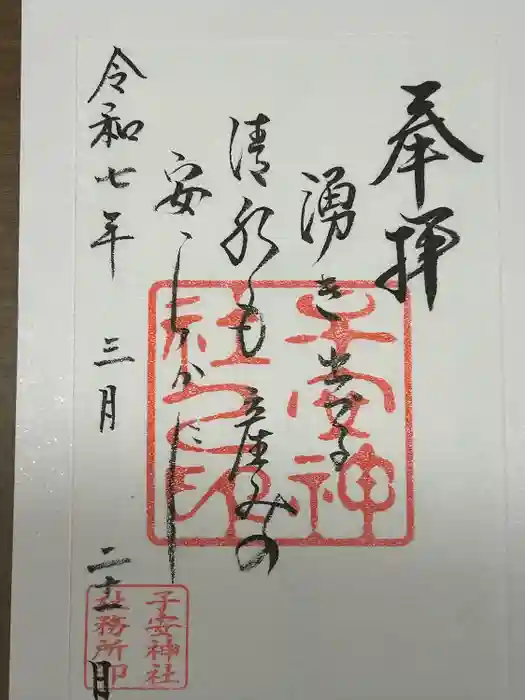 奉拝
湧き出づる
清水も産みの
安〻しかにし
令和七年 三月 二十一日
子安神社之印
子安神社社務所印